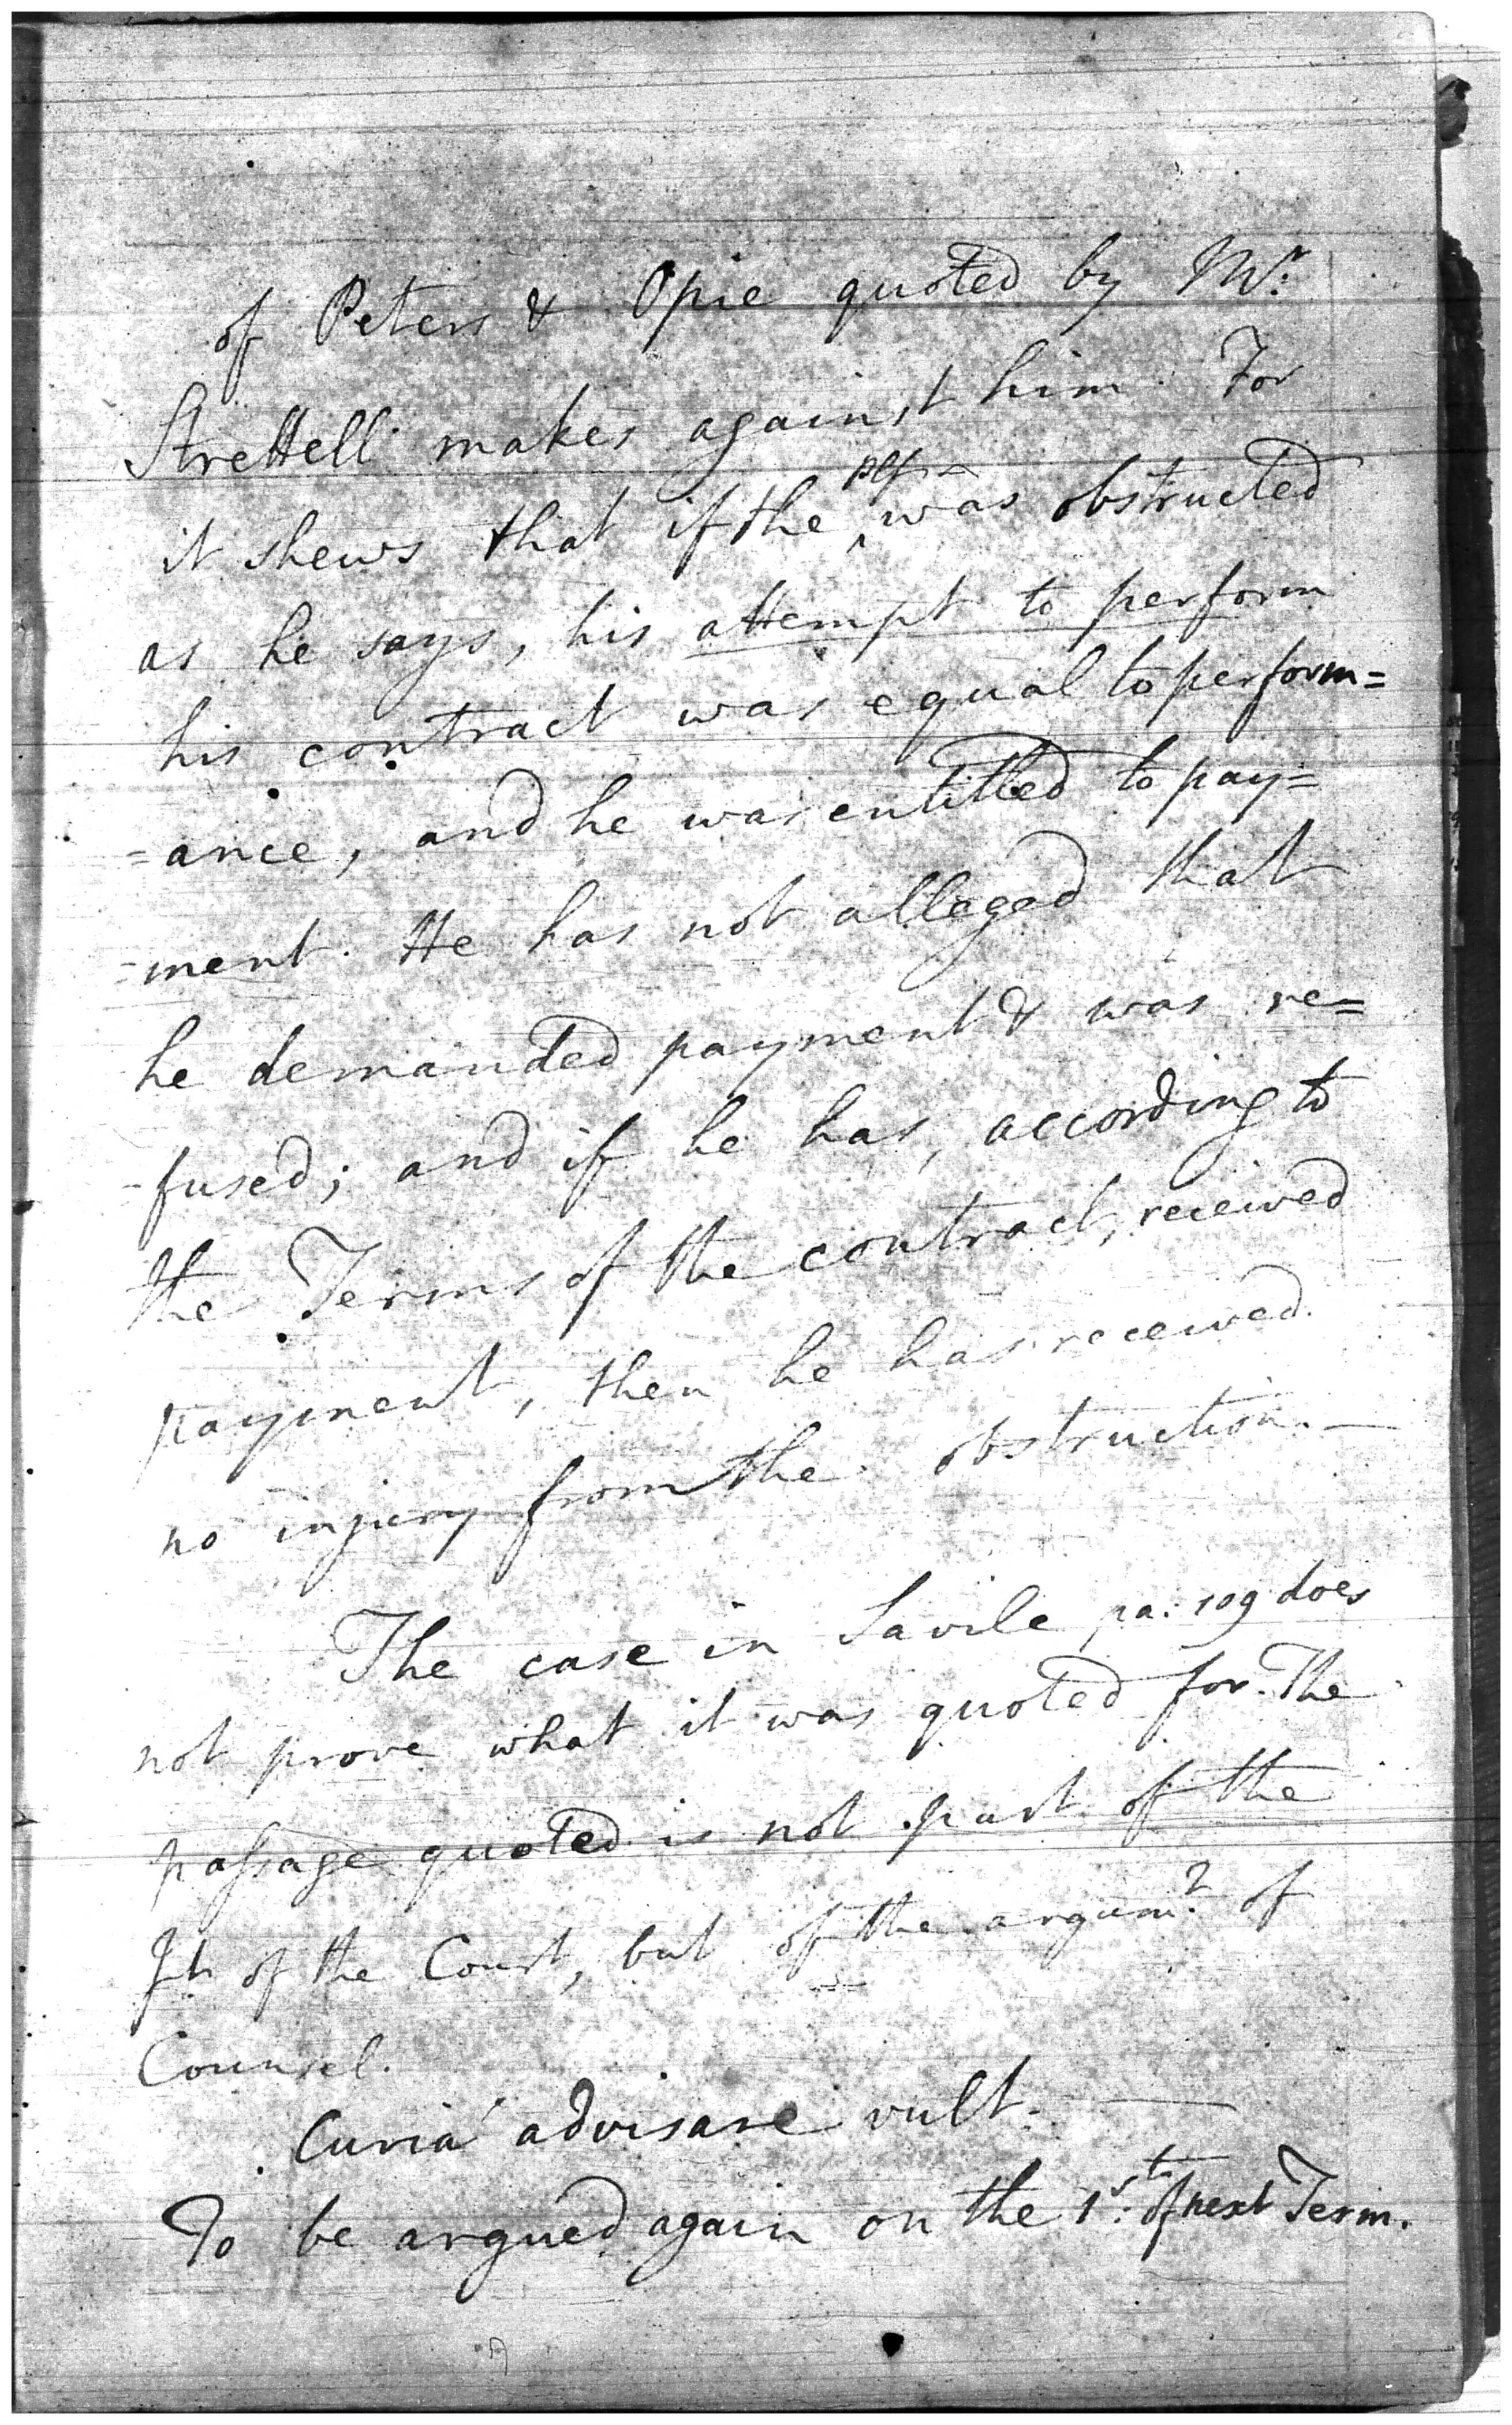 of Peters & Opie quoted by Mr.
Strettell makes against him. For
it shews that if the plf was obstructed
as he says, his attempt to perform
his contract was equal to perform=
=ance, and he was entitled to pay=
=ment. He has not alleged that
he demanded payment & was re=
-fused; and if he has, according to
the Terms of the contract, received
payment, then he has received
no injury from the obstruction. —
The case in Savile pa: 109 does
not prove what it was quoted for. The
passage quoted is not part of the
Jt. of the Court, but of the argumt. of
Counsel.
Curia advisare vult. —
To be argued again on the 1st. of next Term.